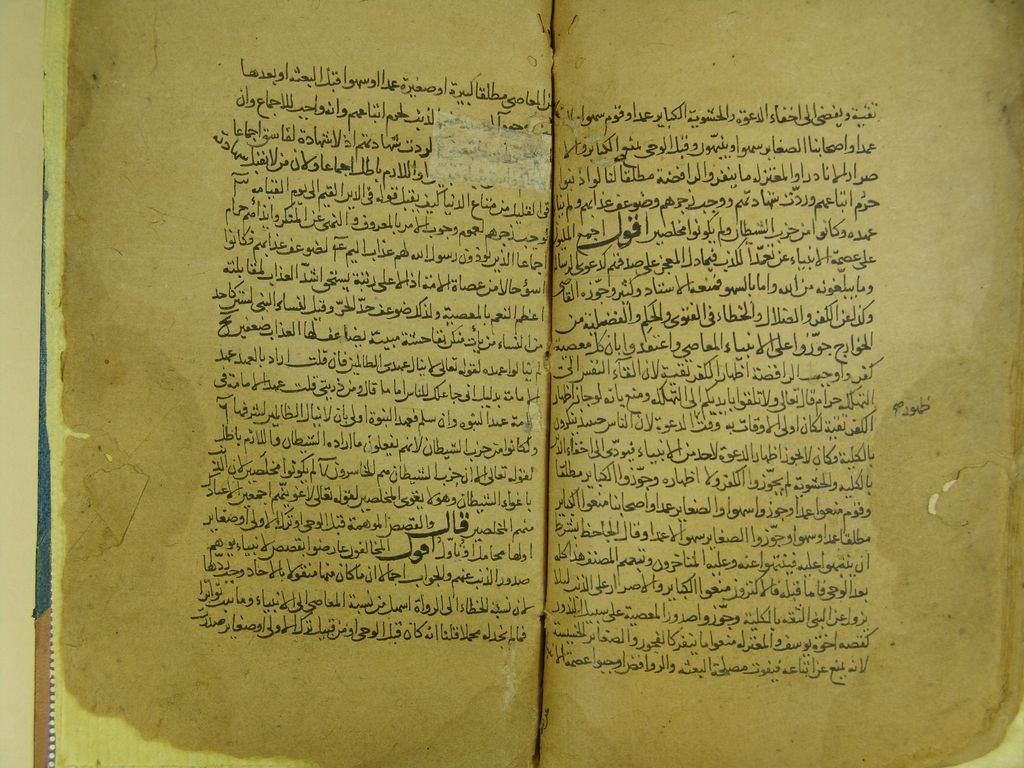 تقية ويفضى الى اخفاء الدعوة والحشوية الكبائر عمدا وقوم سهوا
عمدا واصحابنا الصغائر سهوا وينبهون وقبل الوحى منعوا الكبائر والا
صرار الا نادرا والمعتزلة ما ينفر والرافضة مطلقا لنا لو اذنبوا
حرم اتباعهم وردت شهادتهم ووجب زجرهم وضوعف عذابهم ولم ينالوا
عهده وكانوا من حزب الشيطان ولم يكونوا مخلصين اقول اجمع المليون
على عصمة الانبياء عن تعمد الكذب فيما دل المعجز على صدقهم كدعوى الرسالة
وما يبلغونه من الله واما بالسهو فمنعه الاستاد وكثير وجوزه القاضى
وكذا عن الكفر والضلال والخطاء فى الفتوى والحكم والفضيلية من
الخوارج جوزوا على الانبياء المعاصى واعتقدوا بان كل معصية
كفر واوجب الرافضة اظهار الكفر تقية لان القاء النفس الى
التهلكة حرام قال تعالى ولا تلقوا بايديكم الى التهلكة ومنع بانه لو جاز اظهار
الكفر تقية لكان اولى الاوقات به وقت الدعوة لان الناس حينئذ منكرون
بالكلية وكان لا يجوز اظهار الدعوة لاحد من الانبياء فيودى الى اخفاء الدين
بالكلية والحشوية لم يجوزوا الكفر ولا اظهاره وجوزوا الكبائر مطلقا
وقوم منعوا عمدا وجوزوا سهوا والصغائر عمدا واصحابنا منعوا الكبائر
مطلقا عمدا وسهوا وجوزوا الصغائر سهوا لا عمدا وقال الجاحظ بشرط
ان ينبهوا عليه فينتهوا عنه وعليه المتاخرون وتبعهم المصنف هذا كله
بعد الوحى فاما قبله فالاكثرون منعوا الكبائر والاصرار على الذنب لئلا
يزول عن النبى الثقة بالكلية وجوزوا صدور المعصية على سبيل الندور
كقصة اخوة يوسف والمعتزلة منعوا ما ينفر كالفجور والصغائر الخسيسة
لانه يمنع عن اتباعه فيفوت مصلحة البعثة والروافض اوجبوا عصمة
ظهوره
المعاصى مطلقا كبيرة او صغيرة عمدا او سهوا قبل البعثة او بعدها
اذنب لحرم اتباعهم وانه واجب للاجماع وان
لردت شهادتهم اذ لا شهادة لفاسق اجماعا
واللازم باطل اجماعا ولان من لا يقبل شهادته
فى القليل من متاع الدنيا كيف يقبل قوله فى الدين القيم الى يوم القيامة
لوجب زجرهم لعموم وجوب الامر بالمعروف والنهى عن المنكر وايذائهم حرام
اجماعا الذين يوذون رسول الله لهم عذاب اليم لضوعف عذابهم فكانوا
اسوء حالا من عصاة الامة اذ الاعلى رتبة يستحق اشد العذاب لمقابلته
اعظم النعم بالمعصية ولذلك ضوعف حد الحر وقيل لنساء النبى لستن كاحد
من النساء من يات منكن بفاحشة مبينة يضاعف لها العذاب ضعفين
لم ينالوا عهده لقوله تعالى لا ينال عهدى الظالمين فان قلت اراد بالعهد عهد
الامامة بدليل انى جاعلك للناس اماما قال ومن ذريتى قلت عهد الامامة فى
عهد النبوة وان سلم فعهد النبوة اولى بان لا ينال الظالمين لشرفها
وكانوا من حزب الشيطان لانهم يفعلون ما اراده الشيطان واللازم باطل
لقوله تعالى الا ان حزب الشيطان هم الخاسرون لم يكونوا مخلصين لان الذنب
باغواء الشيطان وهو لا يغوى المخلصين لقوله تعالى لاغوينهم اجمعين الا عبادك
منهم المخلصين قال والقصص الموهمة قبل الوحى او ترك الاولى او صغائر
اولها محامل او ياول اقول المخالفون عارضوا بقصص الانبياء يوهم
صدور الذنب عنهم والجواب اجمالا ان ما كان منها منقولا بالاحاد وجب ردها
لان نسبة الخطاء الى الرواة اسهل من نسبة المعاصى الى الانبياء وما ثبت تواترا
فما لم نجد له محملا قلنا انه كان قبل الوحى او من قبيل ترك الاولى او صغائر صدرت